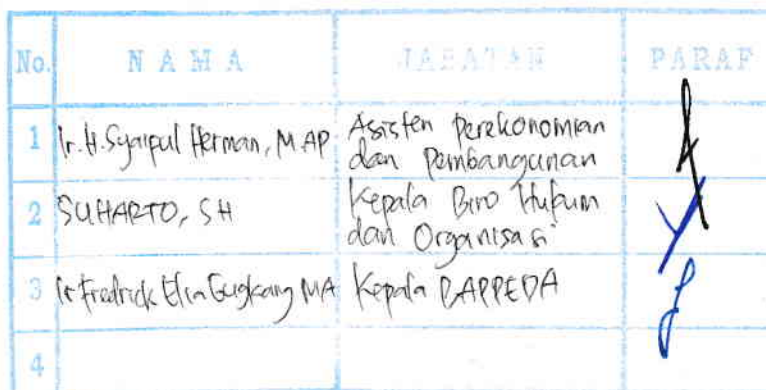 No. NAMA JABATAN PARAF
1 Ir. H. Syaipul Herman, MAP Asisten Perekonomian
dan Pembangunan
2 SUHARTO, SH Kepala Biro Hukum
dan Organisasi
3 Ir Fredrick Elia Gugkang MA Kepala BAPPEDA
4